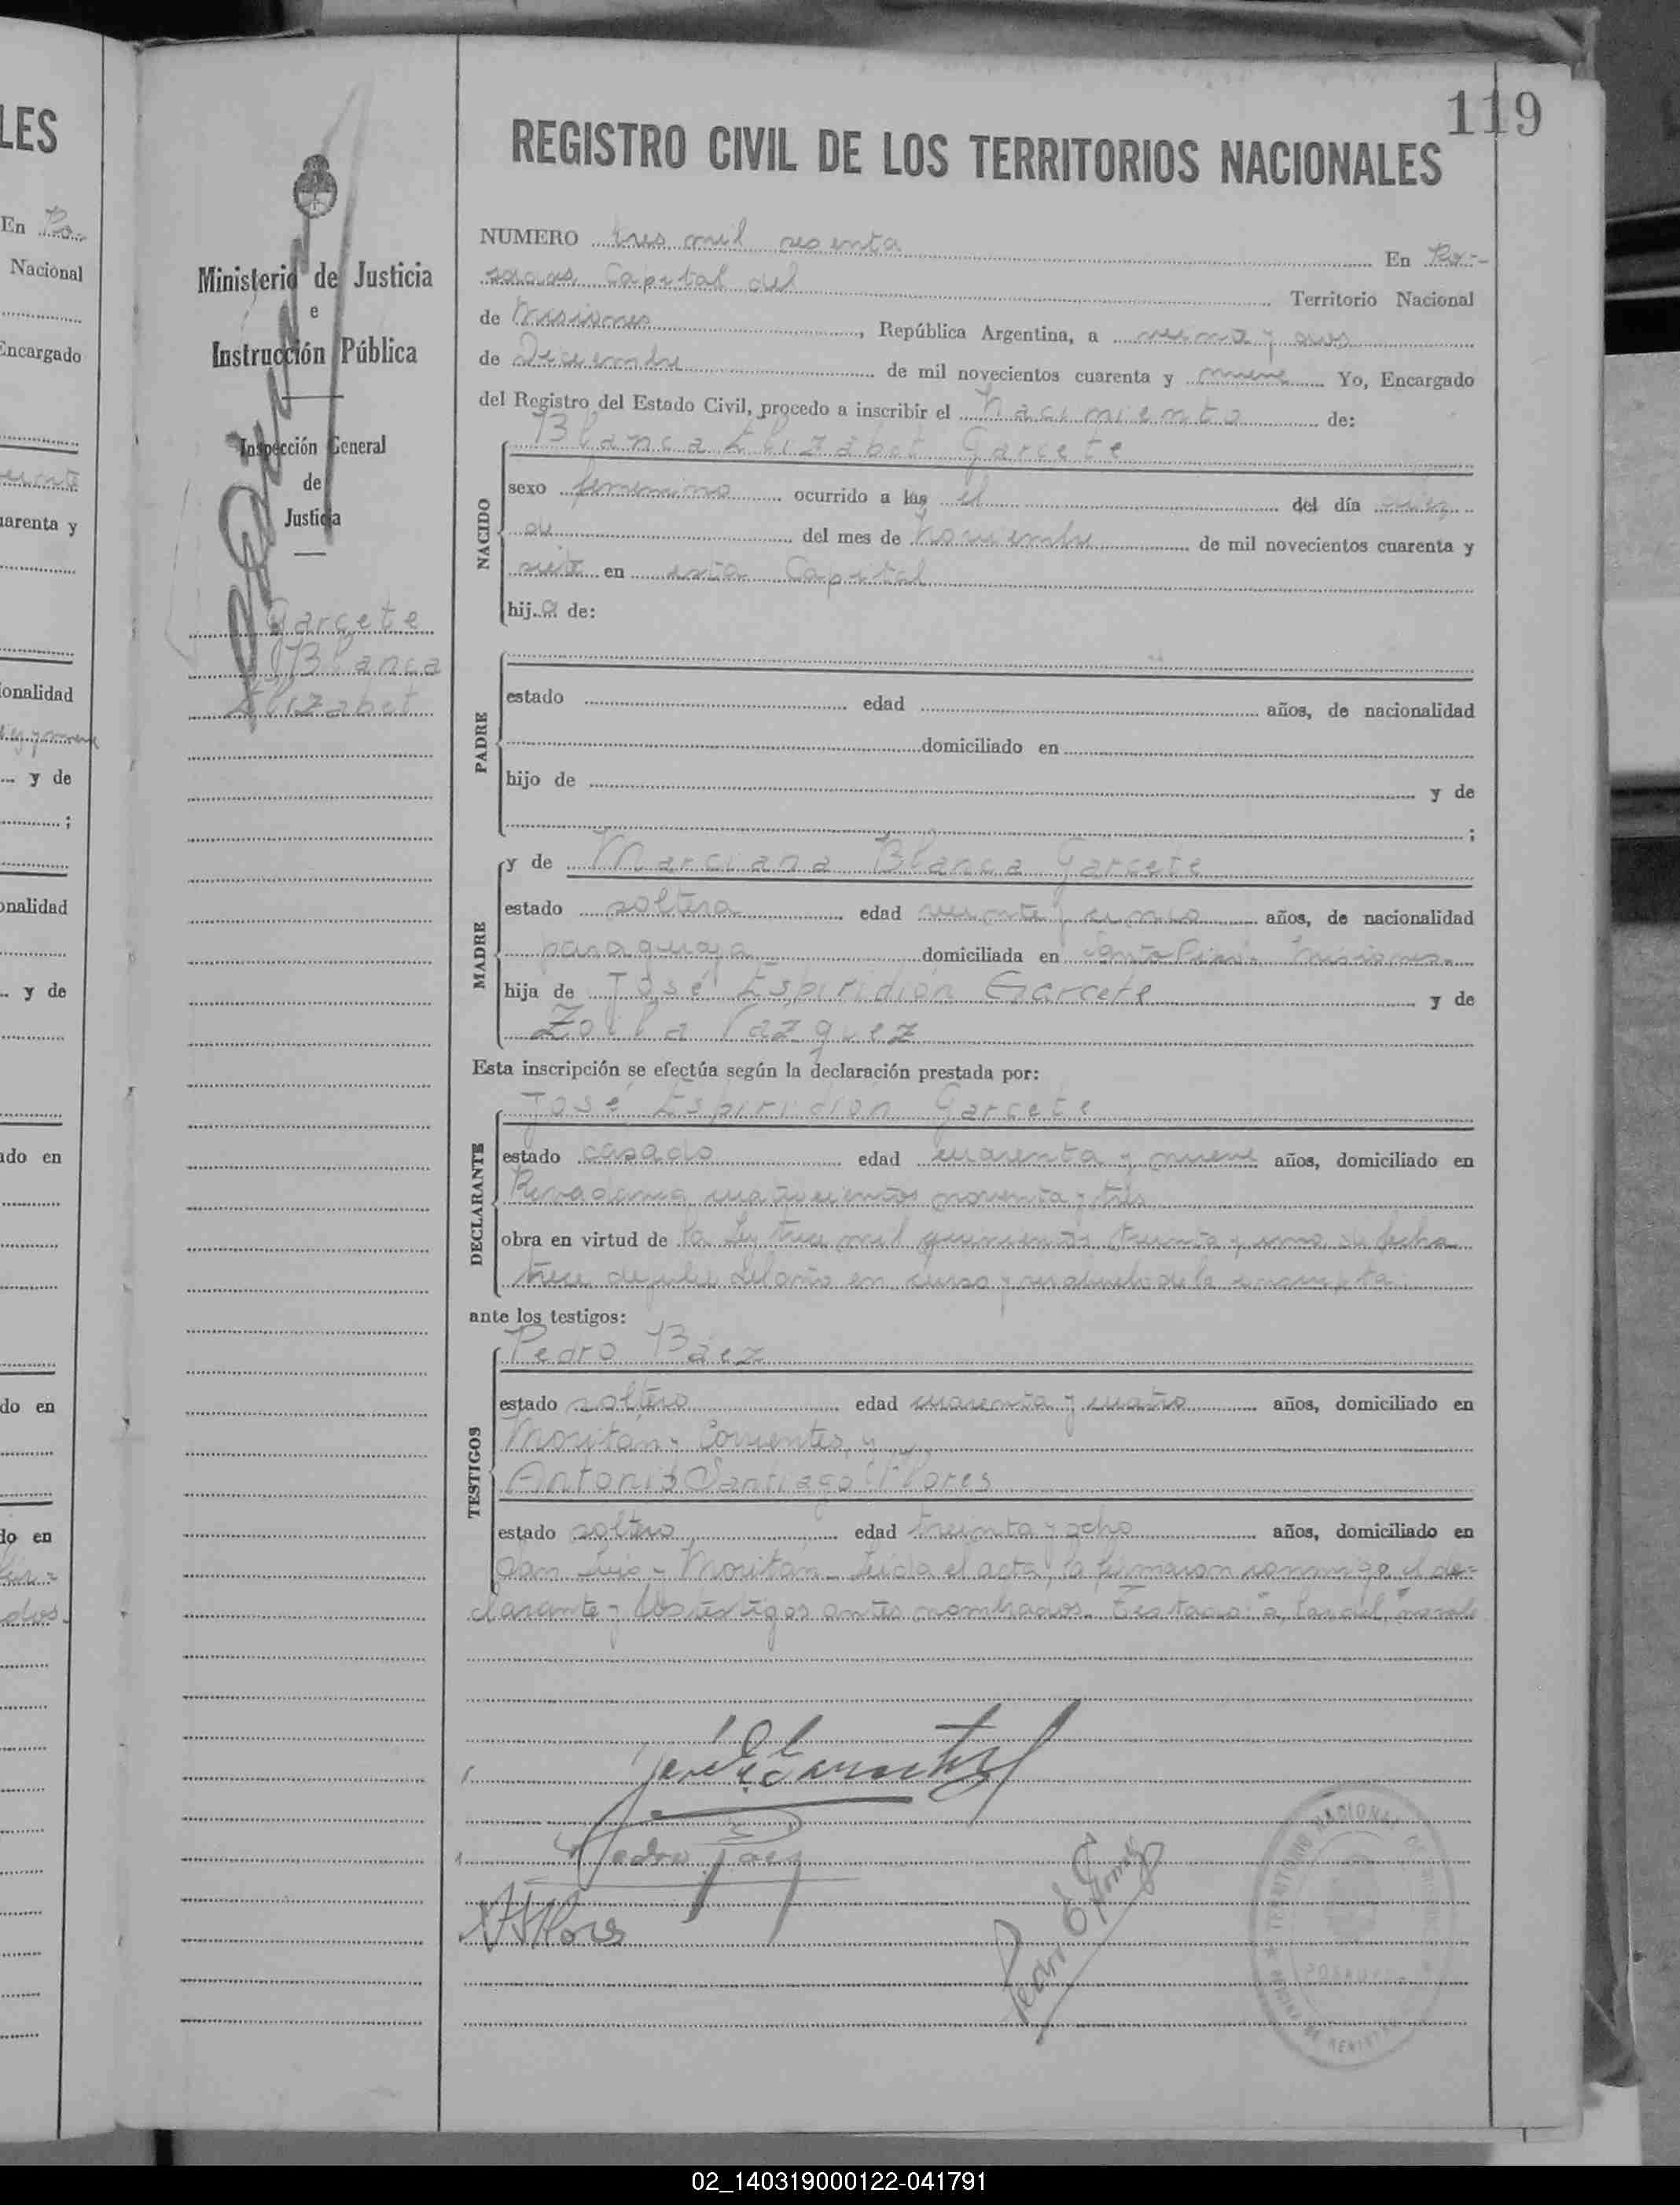 119
LES
REGISTRO CIVIL DE LOS TERRITORIOS NACIONALES
Ministerio de Justicia
e
Instrucción Pública
Inspección General
de
Justicia
Garcete
Blanca
Elizabet
NUMERO tres mil sesenta En Po-
sadas Capital del Territorio Nacional
de Misiones, República Argentina, a veinte y dos
de Diciembre de mil novecientos cuarenta y nueve Yo, Encargado
del Registro del Estado Civil, procedo a inscribir el nacimiento de:
Blanca Elizabet Garcete
NACIDO
sexo femenino ocurrido a las el del día diez
de del mes de Noviembre de mil novecientos cuarenta y
siete en esta Capital
hija de:
PADRE
estado edad años, de nacionalidad
domiciliado en
hijo de y de
;
MADRE
y de Marciana Blanca Garcete
estado soltera edad veinte y cinco años, de nacionalidad
paraguaya domiciliada en Misiones
hija de José Espiridión Garcete y de
Zoila Vázquez
Esta inscripción se efectúa según la declaración prestada por:
DECLARANTE
José Espiridión Garcete
estado casado edad cuarenta y nueve años, domiciliado en
Rivadavia cuatrocientos noventa y tres
obra en virtud de la Ley trece mil quinientos treinta y uno de fecha
trece de julio del año en curso y es abuelo de la inscripta
ante los testigos:
TESTIGOS
Pedro Báez
estado soltero edad cuarenta y cuatro años, domiciliado en
Moritán y Corrientes, y
Antonio Santiago Flores
estado soltero edad treinta y ocho años, domiciliado en
San Luis y Moritán. Leída el acta, la firmaron conmigo el de=
clarante y los testigos antes nombrados. Testado:
Pedro Báez
Flores
TERRITORIO NACIONAL DE MISIONES
POSADAS
02_140319000122-041791